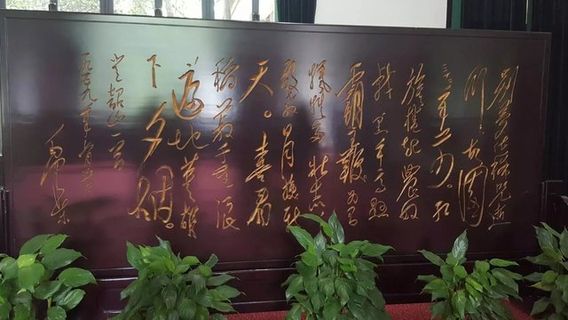 别梦依稀逝
川故園
三十二年前红
旗捲起農奴
戟黑手高悬
霸主鞭为有
牺牲多壮志
敢教日月换新
天。喜看
稻菽千重浪
遍地英雄
下夕烟。
韶山一首
一九五九年
毛泽东